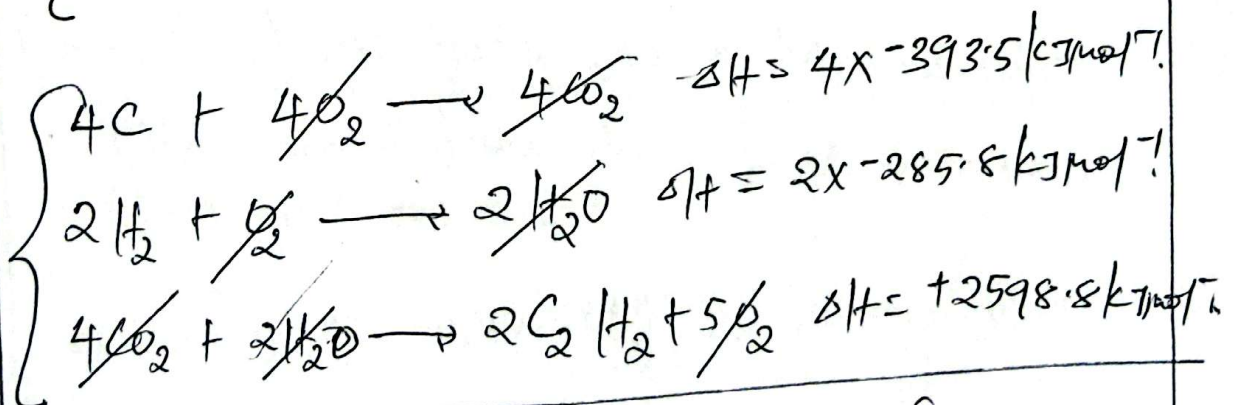 4C + 4O₂ → 4CO₂ ΔH = 4x -393.5 kJmol⁻¹
2H₂ + O₂ → 2H₂O ΔH = 2x -285.8 kJmol⁻¹
4CO₂ + 2H₂O → 2C₂H₂ + 5O₂ ΔH = +2598.8 kJmol⁻¹